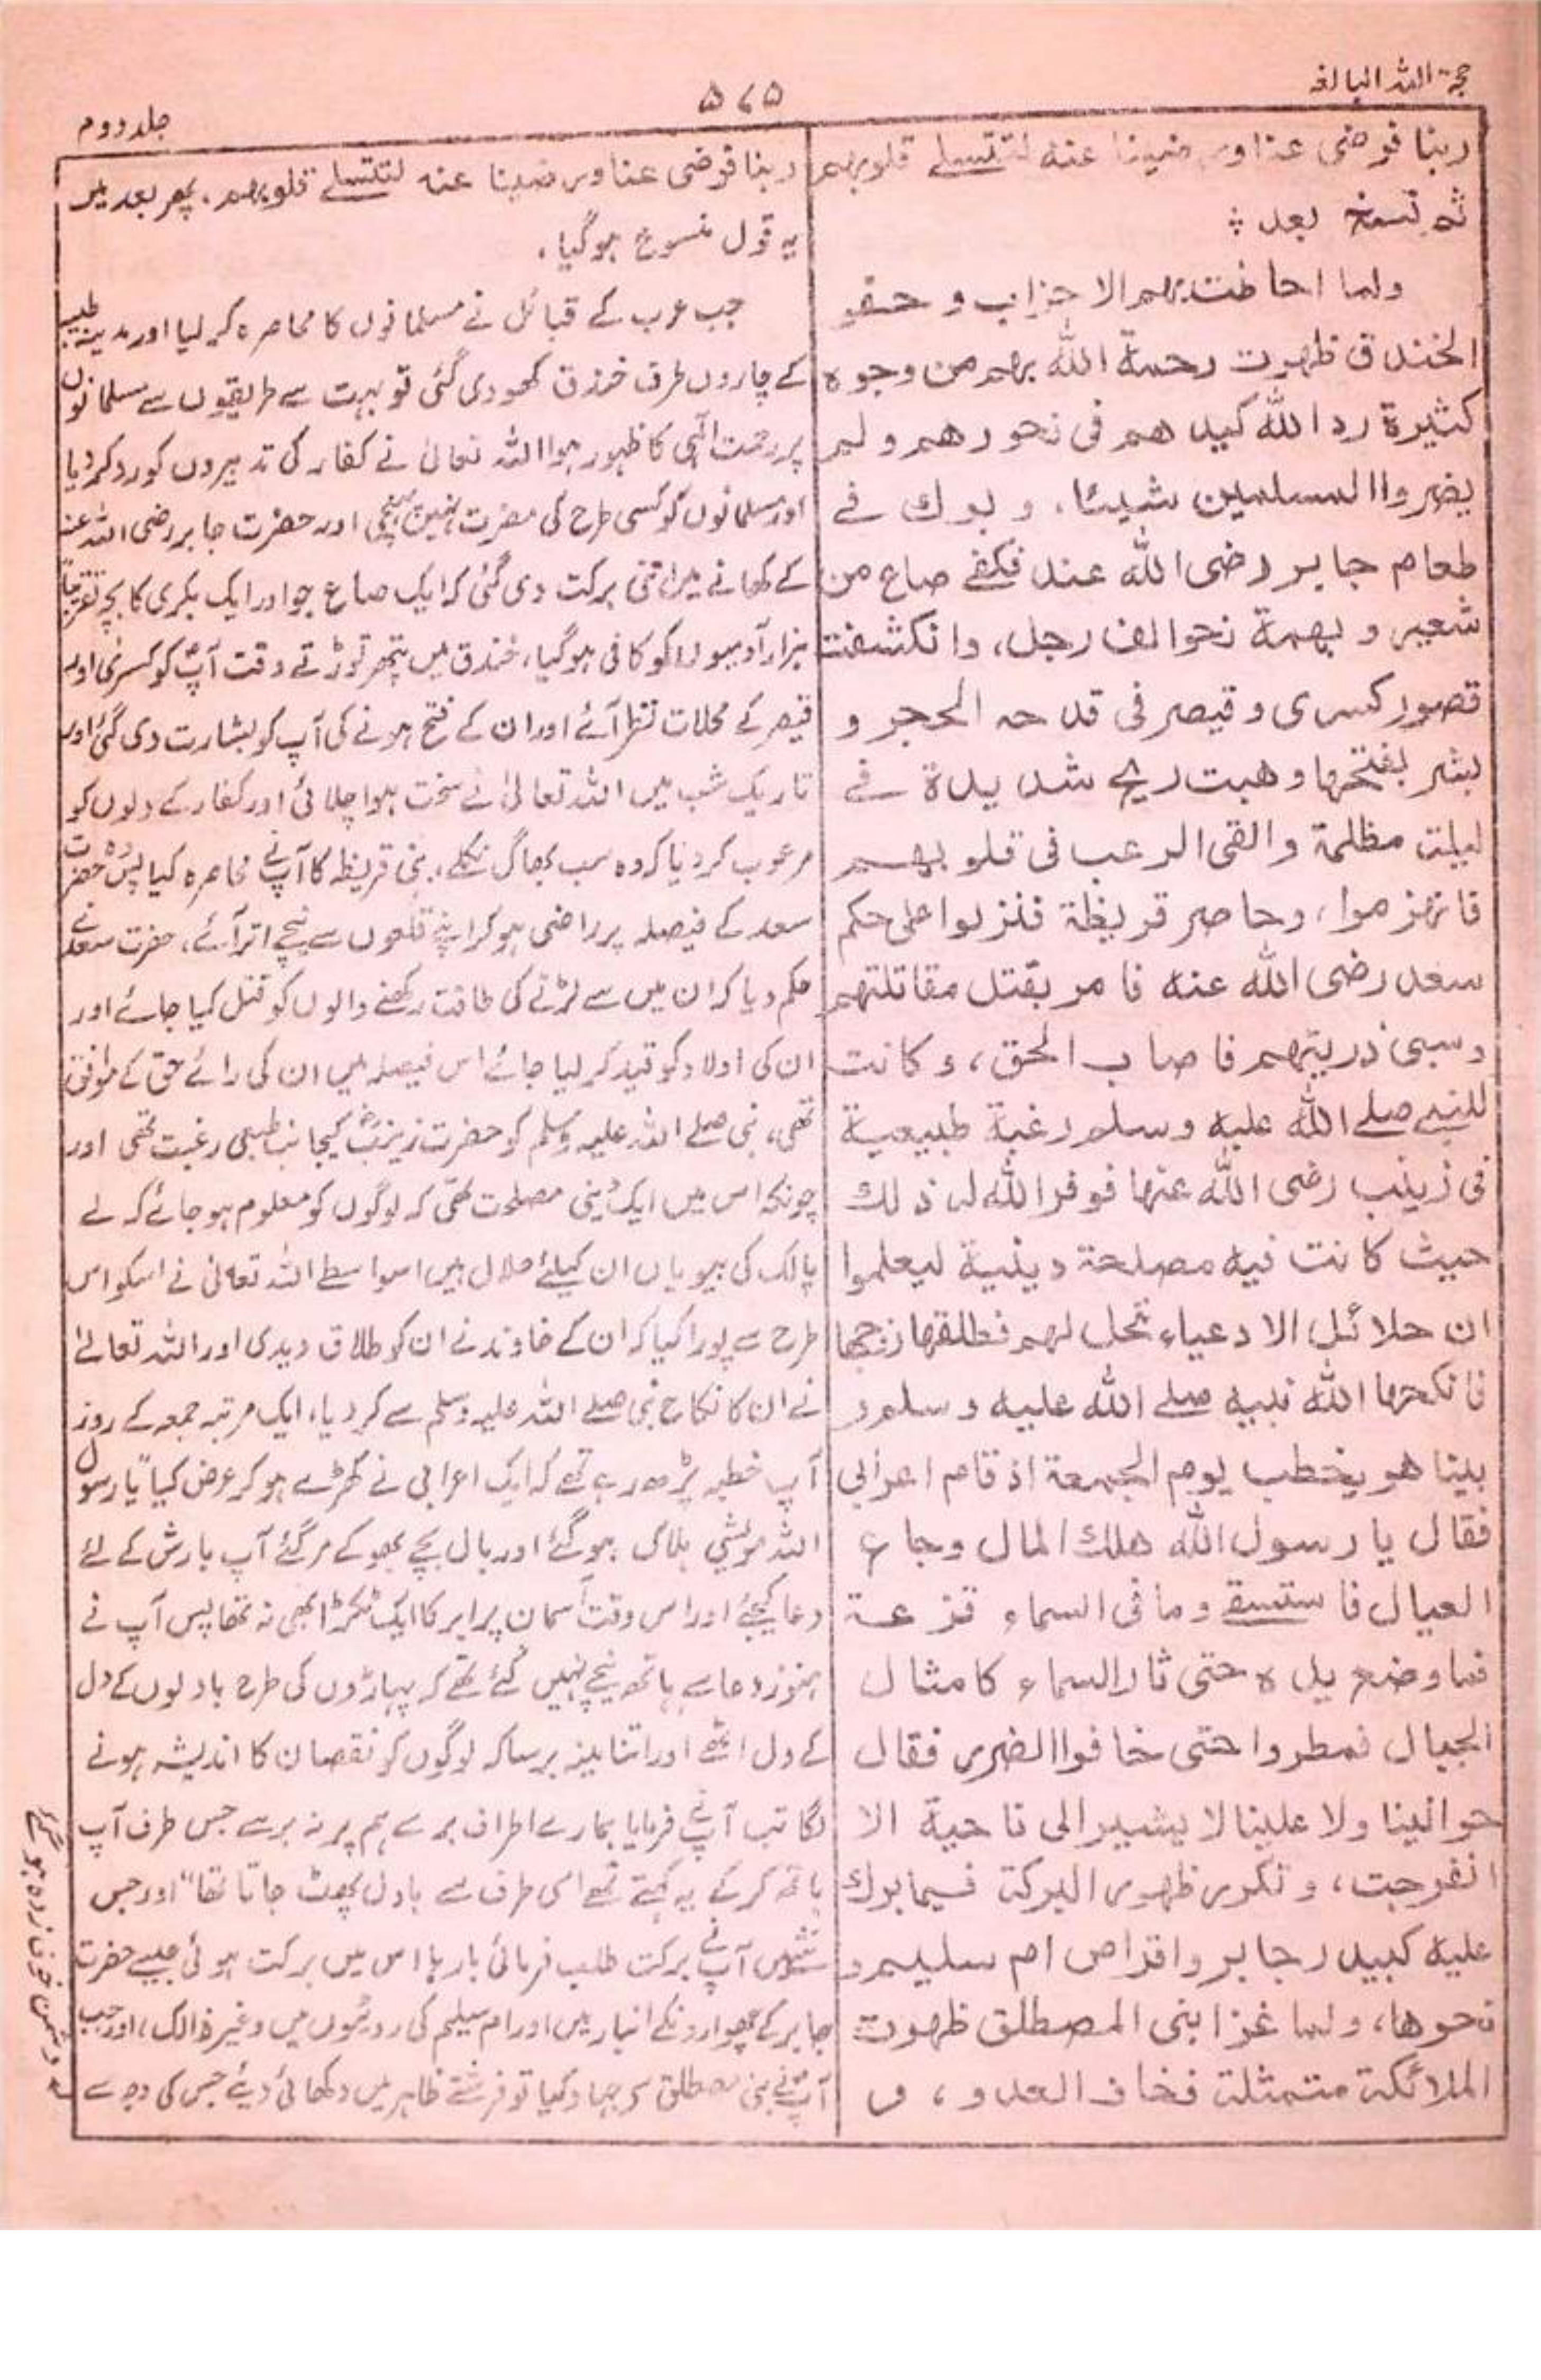 حجۃ اللہ البالغہ
۵۶۵
جلد دوم
ربنا فرضی عنا ورضینا عنه لتتسلے قلوبهم
ثم نسخ بعد ؞
ولما احاطت بهم الاحزاب و حفر
الخندق ظهرت رحمة الله بهم من وجوه
كثيرة رد الله كيدهم فی نحورهم و لم
يضروا المسلمين شيئا، و بورك فے
طعام جابر رضی الله عنه فكفے صاع من
شعير و بهمة نحو الف رجل، وانكشفت
قصور كسری وقيصر فی قدحه الحجر و
بشر بفتحها وهبت ريح شديدة فے
ليلة مظلمة والقی الرعب فی قلوبهم
فانهزموا، وحاصر قريظة فنزلوا علی حكم
سعد رضی الله عنه فامر بقتل مقاتلتهم
وسبی ذريتهم فاصاب الحق، وكانت
للنبی صلے الله عليه وسلم رغبة طبيعية
فی زينب رضی الله عنها فوفر الله له ذلك
حيث كانت فيه مصلحة دينية ليعلموا
ان حلائل الادعياء تحل لهم فطلقها زوجها
فانكحها الله نبيه صلے الله عليه وسلم و
بينا هو يخطب يوم الجمعة اذ قام اعرابی
فقال يا رسول الله هلك المال وجاع
العيال فاستسقے وما فی السماء قزعة
فما وضع يده حتی ثار السماء كامثال
الجبال فمطروا حتی خافوا الضرر فقال
حوالينا ولا علينا لا يشير الی ناحية الا
انفرجت، وتكرر ظهور البركة فيما برك
عليه كبيدر جابر واقراص ام سليم و
نحوها، ولما غزا بنی المصطلق ظهرت
الملائكة متمثلة فخاف العدو، و
ربنا فرضی عنا ورضينا عنه لتتسلے قلوبهم، پھر بعد میں
یہ قول منسوخ ہوگیا۔
جب عرب کے قبائل نے مسلمانوں کا محاصرہ کر لیا اور مدینہ طیبہ
کے چاروں طرف خندق کھودی گئی تو بہت سے طریقوں سے مسلمانوں
پر رحمت الٰہی کا ظہور ہوا اللہ تعالیٰ نے کفار کی تدبیروں کو رد کر دیا
اور مسلمانوں کو کسی طرح کی مضرت نہیں پہنچی اور حضرت جابر رضی اللہ عنہ
کے کھانے میں اتنی برکت دی گئی کہ ایک صاع جو اور ایک بکری کا بچہ تقریباً
ہزار آدمیوں کو کافی ہوگیا، خندق میں پتھر توڑتے وقت آپؐ کو کسریٰ اور
قیصر کے محلات نظر آئے اور ان کے فتح ہونے کی آپ کو بشارت دی گئی اور
تاریک شب میں اللہ تعالیٰ نے سخت ہوا چلائی اور کفار کے دلوں کو
مرعوب کر دیا کہ وہ سب بھاگ نکلے، بنی قریظہ کا آپؐ نے محاصرہ کیا پس وہ حضرت
سعد کے فیصلہ پر راضی ہو کر اپنے قلعوں سے نیچے اتر آئے، حضرت سعد نے
حکم دیا کہ ان میں سے لڑنے کی طاقت رکھنے والوں کو قتل کیا جائے اور
ان کی اولاد کو قید کر لیا جائے اس فیصلہ میں ان کی رائے حق کے موافق
تھی، نبی صلے اللہ علیہ وسلم کو حضرت زینبؓ کیجانب طبعی رغبت تھی اور
چونکہ اس میں ایک دینی مصلحت تھی کہ لوگوں کو معلوم ہو جائے کہ لے
پالک کی بیویاں ان کیلئے حلال ہیں اسواسطے اللہ تعالیٰ نے اسکو اس
طرح سے پورا کیا کہ ان کے خاوند نے ان کو طلاق دیدی اور اللہ تعالےٰ
نے ان کا نکاح نبی صلے اللہ علیہ وسلم سے کر دیا، ایک مرتبہ جمعہ کے روز
آپ خطبہ پڑھ رہے تھے کہ ایک اعرابی نے کھڑے ہو کر عرض کیا "یا رسول
اللہ مویشی ہلاک ہوگئے اور بال بچے بھوکے مر گئے آپ بارش کے لئے
دعا کیجئے اور اس وقت آسمان پر ابر کا ایک ٹکڑا بھی نہ تھا پس آپ نے
ہنوز دعا سے ہاتھ نیچے نہیں کئے تھے کہ پہاڑوں کی طرح بادلوں کے دل
کے دل اٹھے اور اتنا مینہ برسا کہ لوگوں کو نقصان کا اندیشہ ہونے
لگا تب آپؐ نے فرمایا ہمارے اطراف برسے ہم پر نہ برسے جس طرف آپ
ہاتھ کر کے یہ کہتے تھے اسی طرف سے بادل پھٹ جاتا تھا" اور جس
شئے میں آپؐ نے برکت طلب فرمائی بارہا اس میں برکت ہوئی جیسے حضرت
جابر کے چھوارونکے انبار میں اور ام سلیم کی روٹیوں میں وغیر ذالک، اور جب
آپؐ نے بنی مصطلق پر جہاد کیا تو فرشتے ظاہر میں دکھائی دیئے جس کی وجہ سے
دشمن خوف زدہ ہوگئے